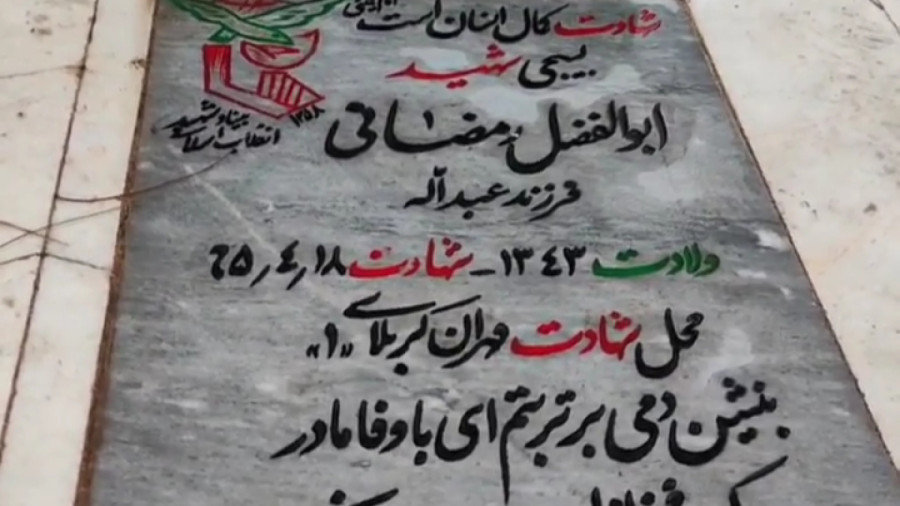 شهادت کمال انسان است
بسیجی شهید
ابوالفضل رمضانی
فرزند عبداله
ولادت ۱۳۴۳ - شهادت ۶۵٫۴٫۱۸
محل شهادت مهران کربلای «۱»
بنشین دمی بر تربتم ای با وفا مادر
بنیاد شهید
انقلاب اسلامی
۱۳۵۸